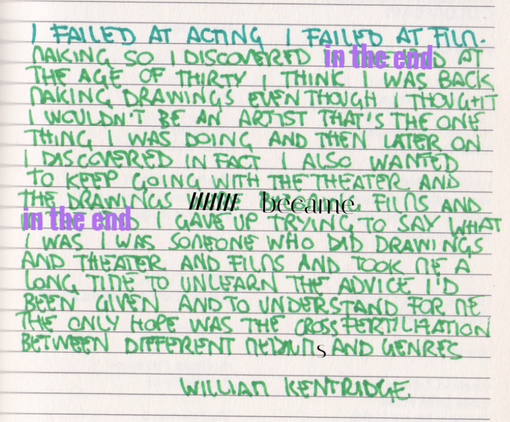 I FAILED AT ACTING I FAILED AT FILM-
MAKING SO I DISCOVERED in the end AT
THE AGE OF THIRTY I THINK I WAS BACK
MAKING DRAWINGS EVEN THOUGH I THOUGHT
I WOULDN'T BE AN ARTIST THAT'S THE ONE
THING I WAS DOING AND THEN LATER ON
I DISCOVERED IN FACT I ALSO WANTED
TO KEEP GOING WITH THE THEATER AND
THE DRAWINGS became FILMS AND
in the end I GAVE UP TRYING TO SAY WHAT
I WAS I WAS SOMEONE WHO DID DRAWINGS
AND THEATER AND FILMS AND TOOK ME A
LONG TIME TO UNLEARN THE ADVICE I'D
BEEN GIVEN AND TO UNDERSTAND FOR ME
THE ONLY HOPE WAS THE CROSS FERTILIZATION
BETWEEN DIFFERENT MEDIUMs AND GENRES
WILLIAM KENTRIDGE